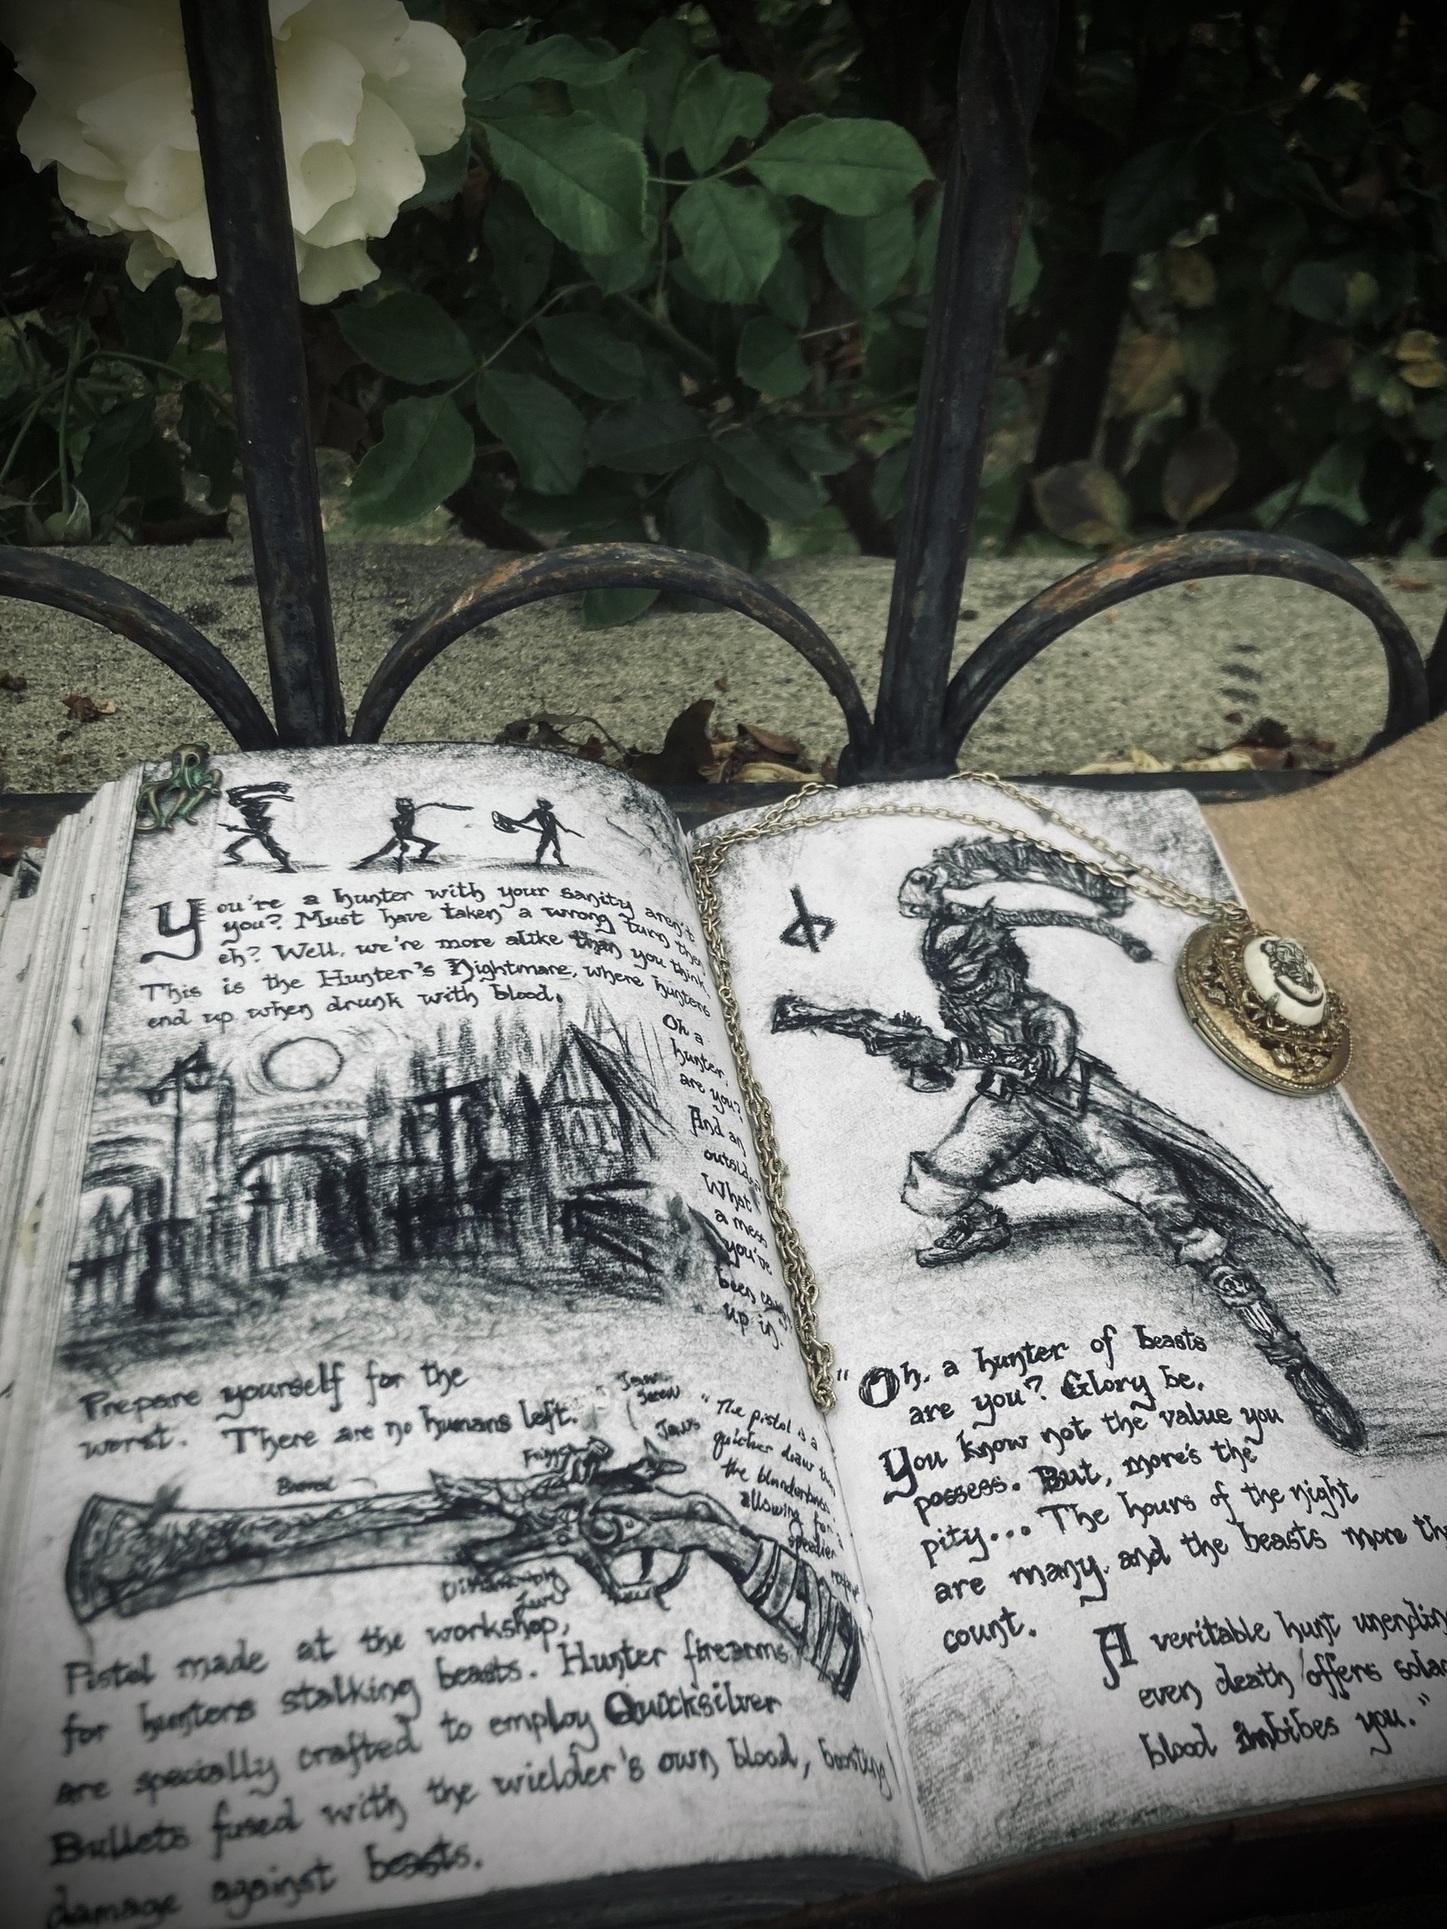 You're a hunter with your sanity aren't
you? Must have taken a wrong turn then
eh? Well, we're more alike than you think.
This is the Hunter's Nightmare, where hunters
end up when drunk with blood.
Oh a
hunter,
are you?
And an
What
a mess
you've
been
up in.
Prepare yourself for the
worst. There are no humans left.
Jaw
Screw
Jaws
Barrel
"The pistol is a
quicker draw than
the blunderbuss
allowing for
speedier
Pistol made at the workshop,
for hunters stalking beasts. Hunter firearms
are specially crafted to employ Quicksilver
Bullets fused with the wielder's own blood,
damage against beasts.
"Oh, a hunter of beasts
are you? Glory be.
You know not the value you
possess. But, more's the
pity... The hours of the night
are many, and the beasts more
count.
A veritable hunt
even death offers
blood imbibes you."